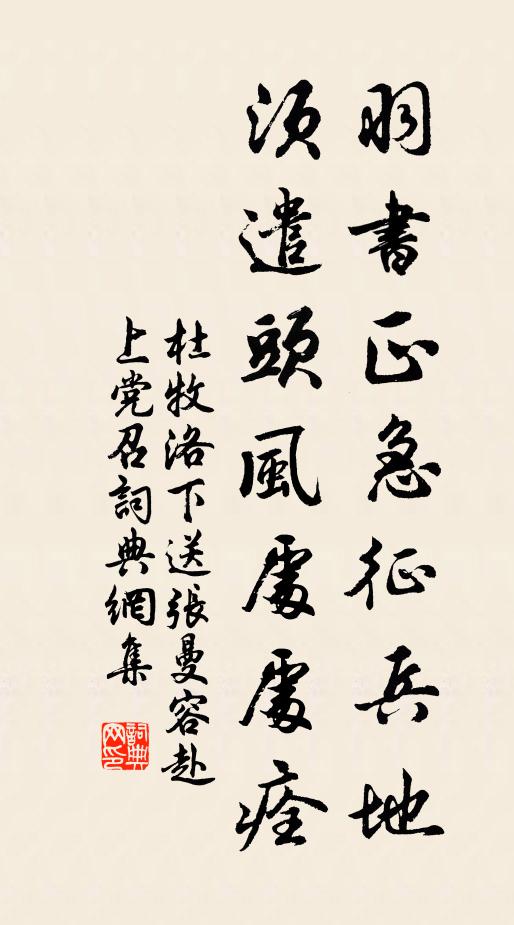 羽書正急征兵地
須遣頭風處處痊
杜牧洛下送張曼容赴
上党召詞典網集
詞典
网印